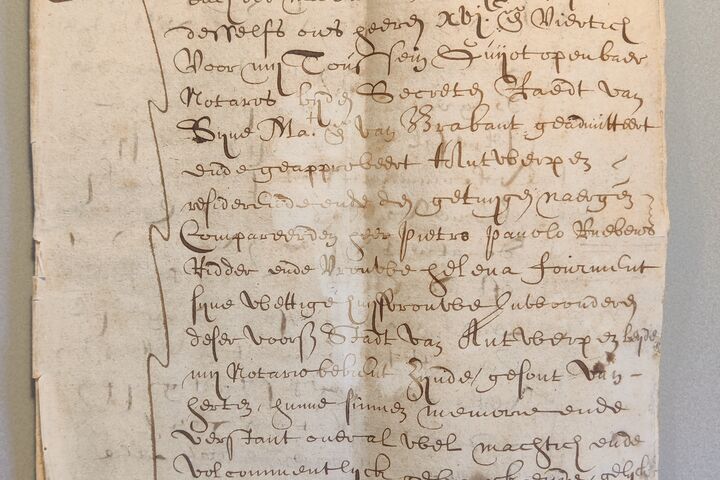 desselfs ons heeren XVJ.C Viertich
Voor mij Toussein Guijot openbaer
Notaris bijden Secreten Raedt van
Sijne Ma.t van Brabant geadmitteert
ende geapprobeert tAntwerpen
residerende ende den getuijgen naergen
Compareerden heer Pietro Pauolo Rubens
Ridder ende Vrouwe helena fourment
sijne wettige huijsvrouwe Inwoonderen
deser voors Stadt van Antwerpen beijde
mij Notario bekent Zijnde, gesont van
herten, hunne sinnen memorie ende
verstant overal wel machtich ende
volcommentlijck gebruijckende, gelijck